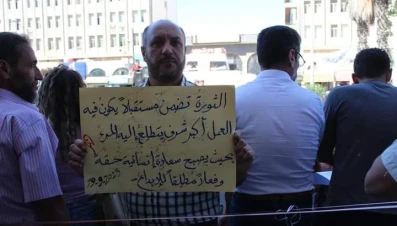 الثورة تضمن مستقبلاً يكون فيه
العمل أكبر شرف يتطلع إليه المرء
بحيث يصبح سعادة إنسانية حقه
وفعلاً مطلقاً للإبداع -